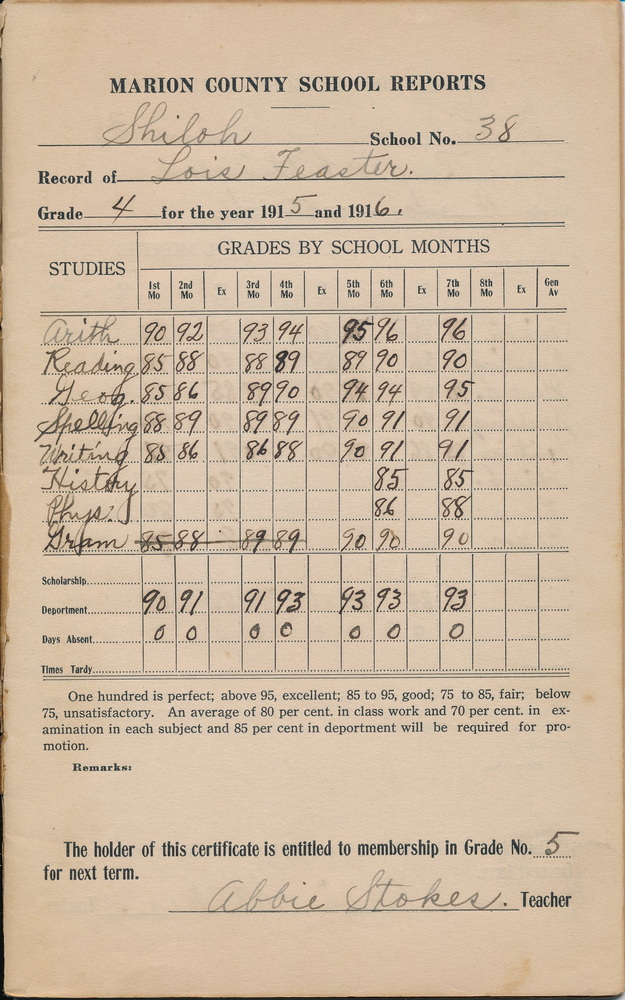 MARION COUNTY SCHOOL REPORTS
Shiloh School No. 38
Record of Lois Feaster.
Grade 4 for the year 1915 and 1916.
STUDIES GRADES BY SCHOOL MONTHS
1st Mo 2nd Mo Ex 3rd Mo 4th Mo Ex 5th Mo 6th Mo Ex 7th Mo 8th Mo Ex Gen Av
Arith 90 92 93 94 95 96 96
Reading 85 88 88 89 89 90 90
Geog. 85 86 89 90 94 94 95
Spelling 88 89 89 89 90 91 91
Writing 85 86 86 88 90 91 91
History 85 85
Phys. 86 88
Gram 85 88 89 89 90 90 90
Scholarship
Department 90 91 91 93 93 93 93
Days Absent 0 0 0 0 0 0 0
Times Tardy
One hundred is perfect; above 95, excellent; 85 to 95, good; 75 to 85, fair; below
75, unsatisfactory. An average of 80 per cent. in class work and 70 per cent. in ex-
amination in each subject and 85 per cent in deportment will be required for pro-
motion.
Remarks:
The holder of this certificate is entitled to membership in Grade No. 5
for next term.
Abbie Stokes. Teacher